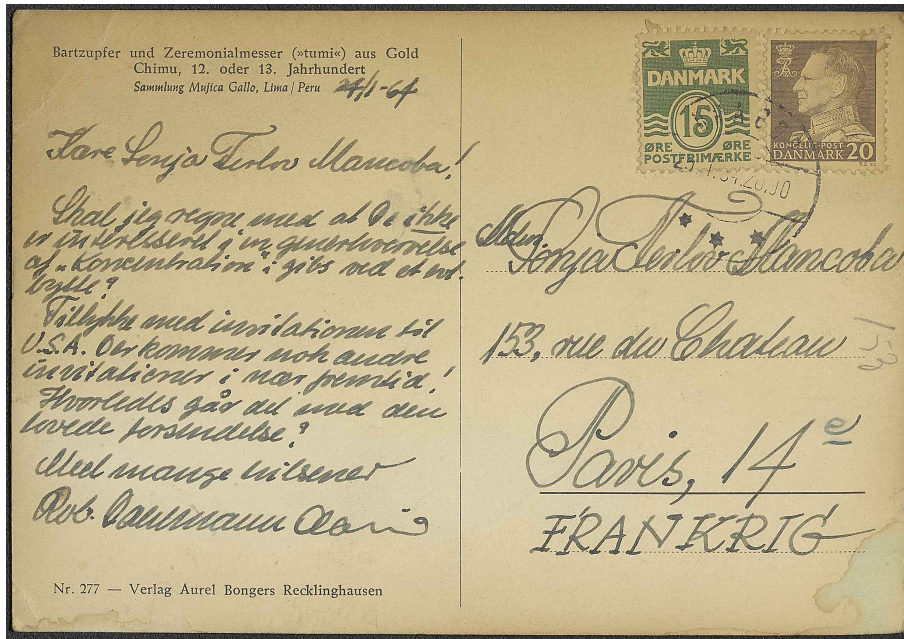 Bartzupfer und Zeremonialmesser (»tumi«) aus Gold
Chimu, 12. oder 13. Jahrhundert
Sammlung Mujica Gallo, Lima / Peru 24/1-64
Kære Sonja Ferlov Mancoba!
Skal jeg regne med at De ikke
er interesseret i en
af "Koncentration" i gibs ved et
bytte?
Tillykke med invitationen til
U.S.A. Der kommer nok andre
invitationer i nær fremtid!
Hvorledes går det med den
lovede forsendelse?
Med mange hilsener
Rob. Dahlmann Olsen
Nr. 277 — Verlag Aurel Bongers Recklinghausen
DANMARK
15
ØRE ØRE
POSTFRIMÆRKE
KONGELIG-POST
DANMARK 20
Sonja Ferlov Mancoba
153, rue du Chateau
153
Paris, 14e
FRANKRIG